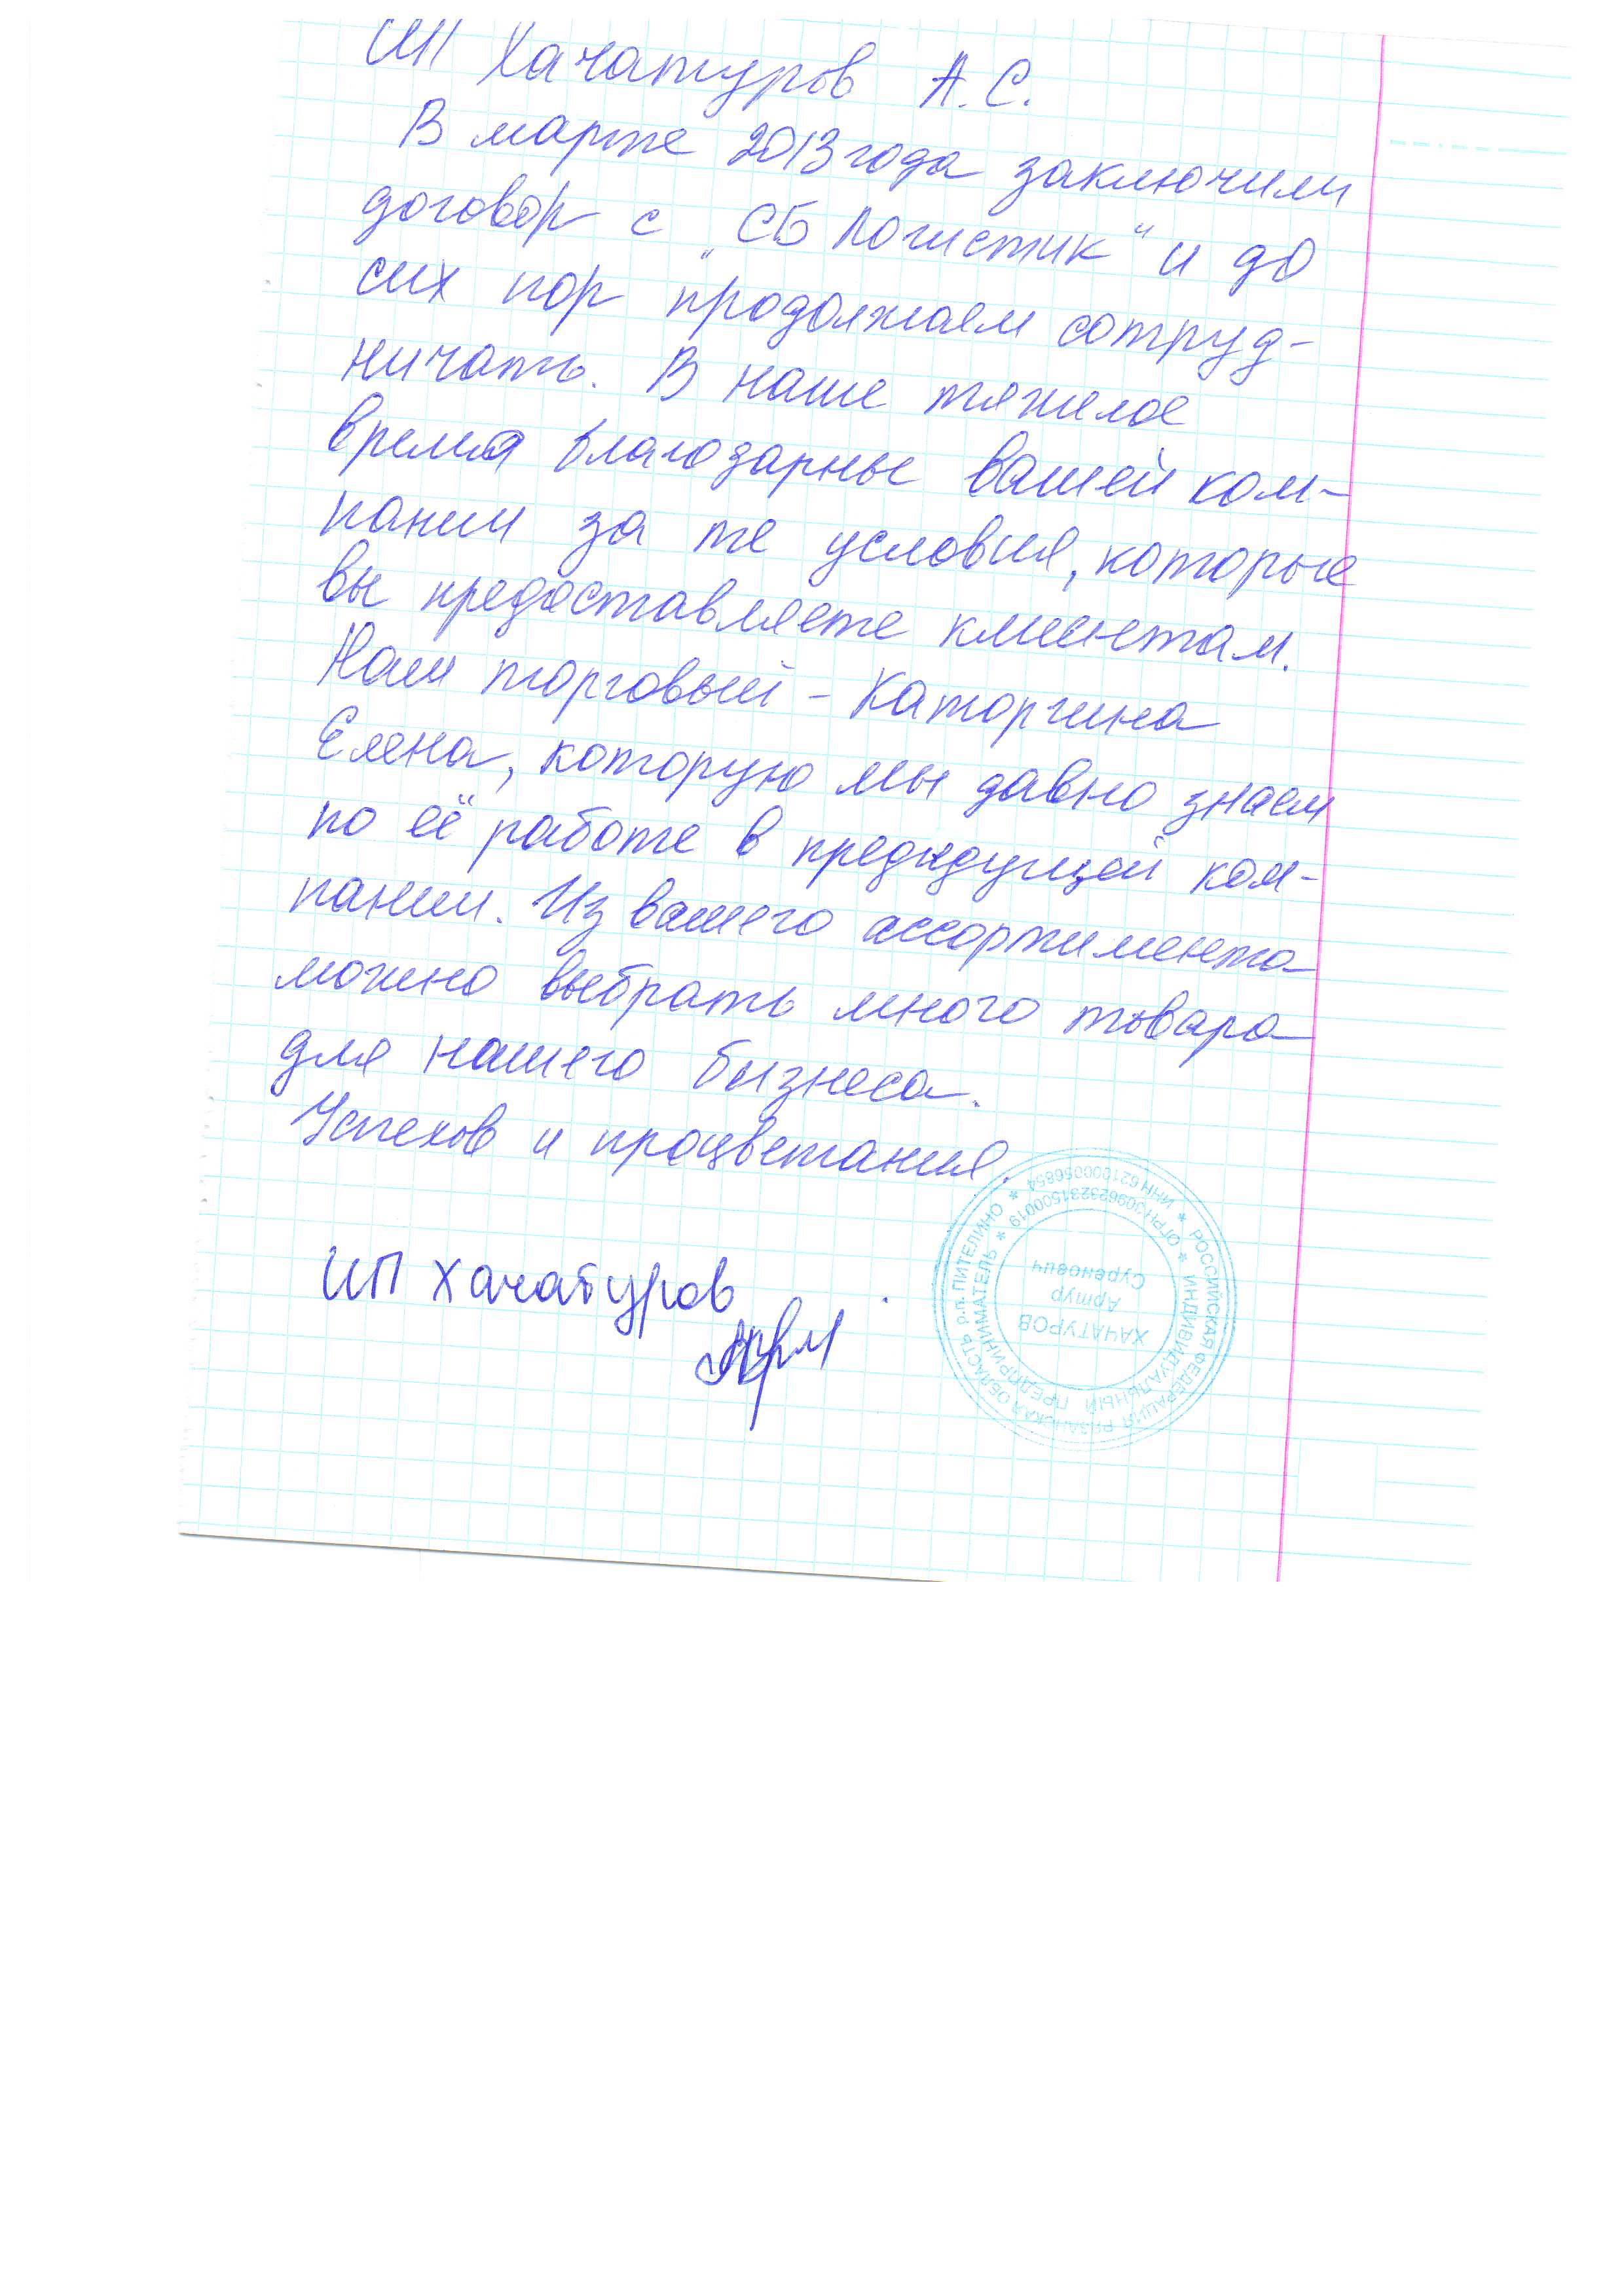 ИП Хачатуров А.С.
В марте 2013 года заключили
договор с „СБ Логистик“ и до
сих пор продолжаем сотруд-
ничать. В наше тяжелое
время благодарные вашей ком-
пании за те условия, которые
вы предоставляете клиентам.
Наш торговый - Каторгина
Елена, которую мы давно знаем
по её работе в предыдущей ком-
пании. Из вашего ассортимента
можно выбрать много товара
для нашего бизнеса.
Успехов и процветания.
ИП Хачатуров
РОССИЙСКАЯ ФЕДЕРАЦИЯ РЯЗАНСКАЯ ОБЛАСТЬ р.п. ПИТЕЛИНО * ИНН 621000056854 *
ИНДИВИДУАЛЬНЫЙ ПРЕДПРИНИМАТЕЛЬ * ОГРН 309623231500019 *
ХАЧАТУРОВ
Артур
Суренович